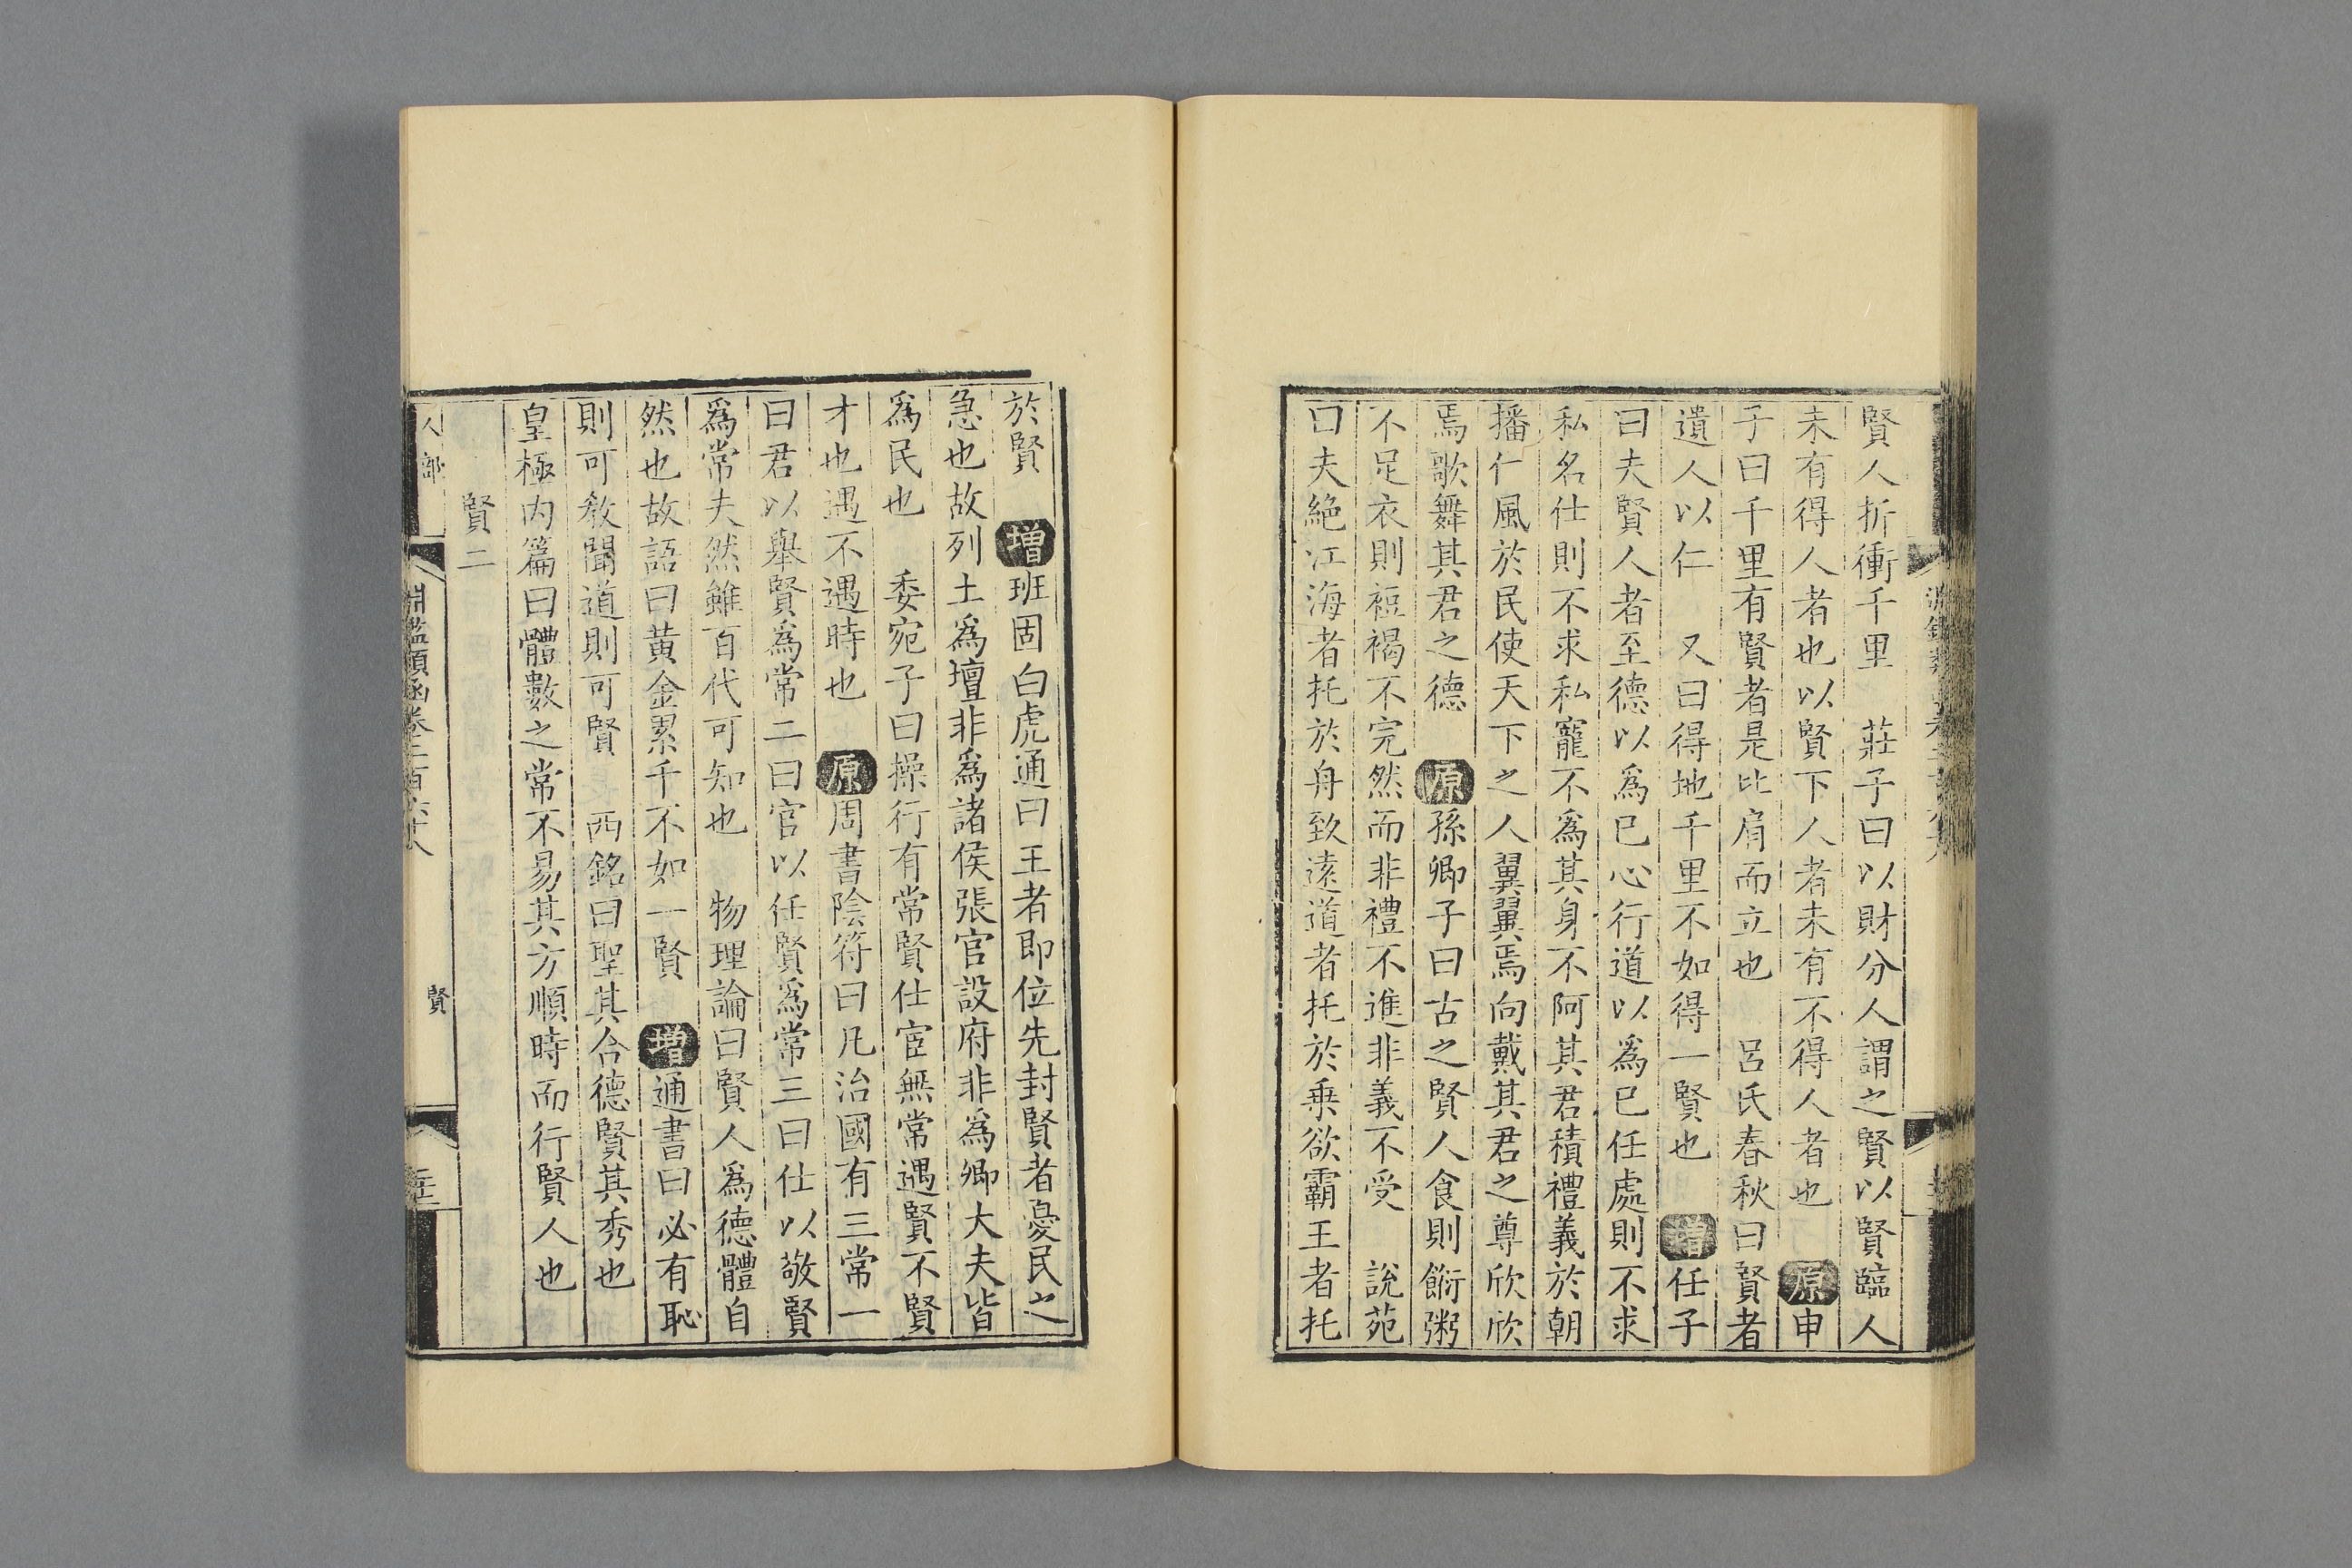 賢人折衝千里　莊子曰以財分人謂之賢以賢臨人
未有得人者也以賢下人者未有不得人者也　原申
子曰千里有賢者是比肩而立也　呂氏春秋曰賢者
遺人以仁　又曰得地千里不如得一賢也　增任子
曰夫賢人者至德以爲己心行道以爲己任處則不求
私名仕則不求私寵不爲其身不阿其君積禮義於朝
播仁風於民使天下之人翼翼焉向戴其君之尊欣欣
焉歌舞其君之德　原孫卿子曰古之賢人食則餰粥
不足衣則裋褐不完然而非禮不進非義不受　說苑
曰夫絕江海者托於舟致遠道者托於乗欲霸王者托
於賢　增班固白虎通曰王者即位先封賢者憂民之
急也故列土爲壇非爲諸侯張官設府非爲卿大夫皆
爲民也　委宛子曰操行有常賢仕宦無常遇賢不賢
才也遇不遇時也　原周書陰符曰凡治國有三常一
曰君以舉賢爲常二曰官以任賢爲常三曰仕以敬賢
爲常夫然雖百代可知也　物理論曰賢人爲德體自
然也故語曰黄金累千不如一賢　增通書曰必有恥
則可教聞道則可賢　西銘曰聖其合德賢其秀也
皇極内篇曰體數之常不易其方順時而行賢人也
賢二
人部
淵鑑類函卷二百六十八
賢